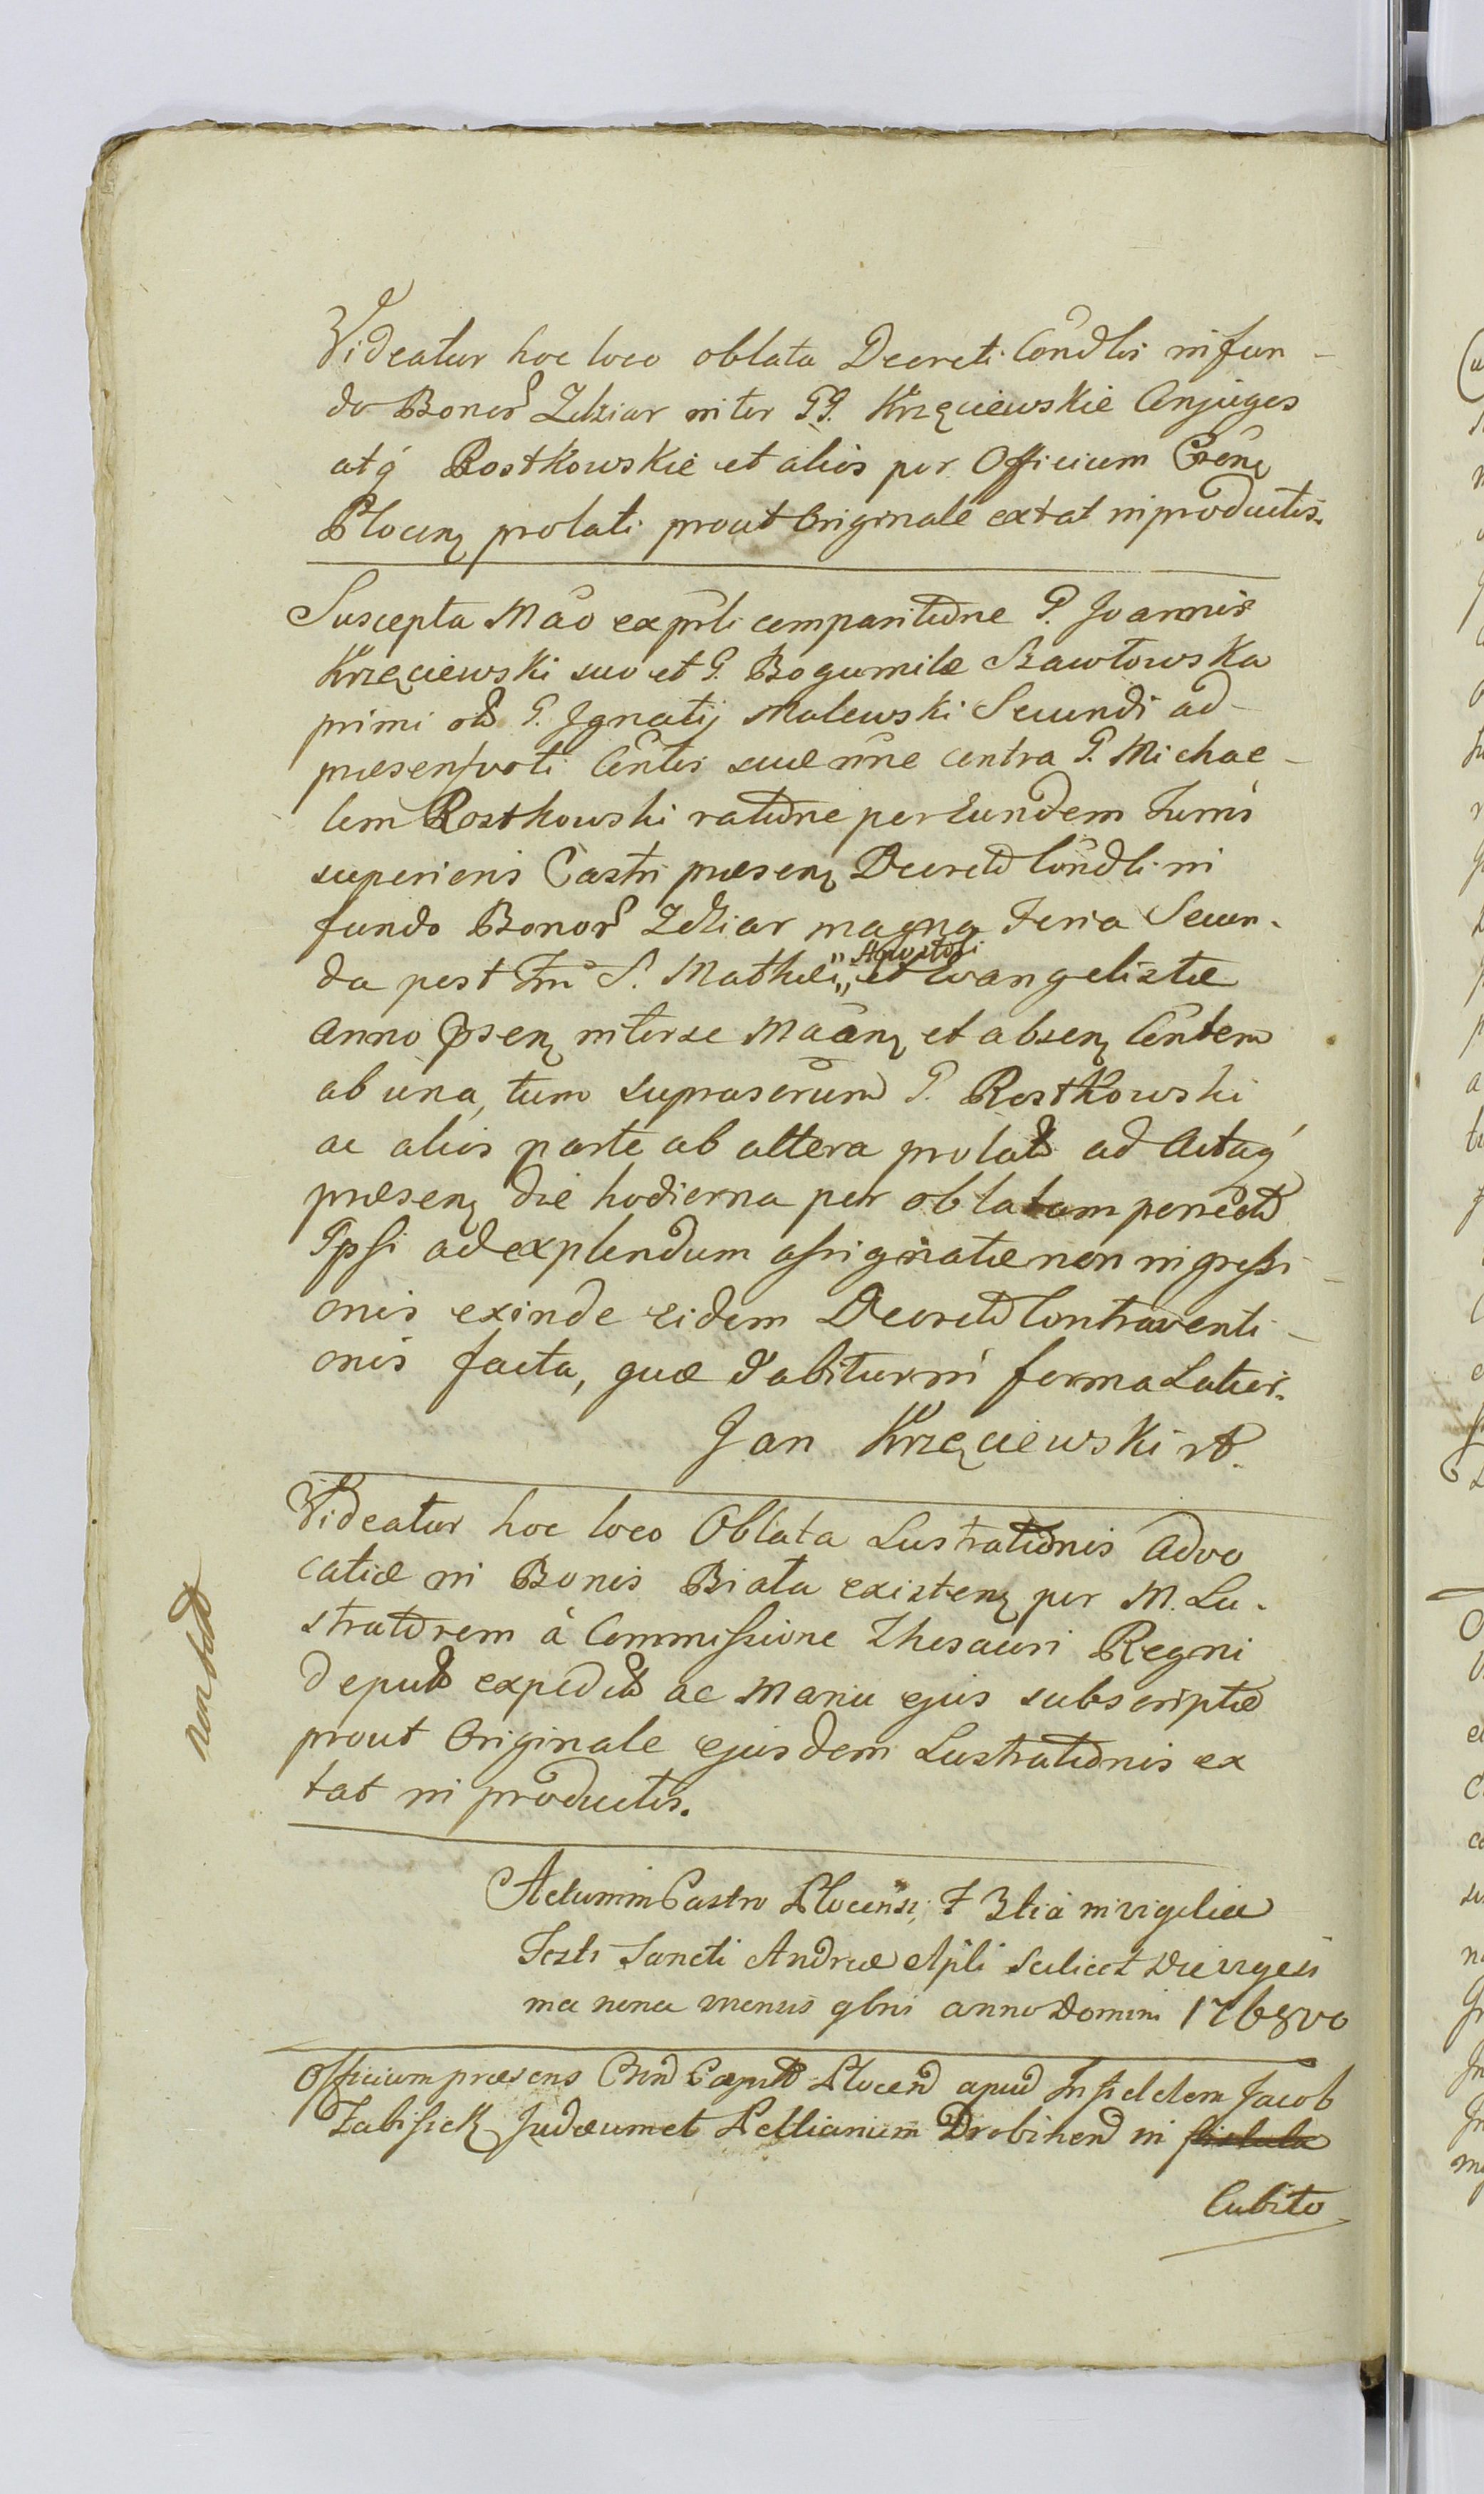 Videatur hoc loco oblata Decreti Condlis in fun-
do Bonor Zdziar inter GG. Krzęciewskie Conjuges
atq Rostkowskie et alios per Officium Crēnę
Plocenę prolati prout Originale extat in productis.
Suscepta Mão ex pñti comparitione G. Joannis
Krzęciewski suo et G. Bogumilæ Szawłowska
primi G. Ignatij Malewski Secundi ad
præsen voti Cōntis suæ nñe contra G. Michae-
lem Rostkowski ratione per Eundem Juris
superioris Castri præsenę Decreto Condli in
fundo Bonor Zdziar magna Feria Secun-
da post Fm S. Mathæi „Apostoli„ et Evangelistæ
anno præsenę inter se Maānę et absenę Cōntem
ab una, tum suprascrium G. Rostkowski
ac alios parte ab altera prolato ad Actaq
præsenę die hodierna per oblatam porrecto
Ipsi ad explendum assignatæ non ingressi-
onis exinde eidem Decreto Contraventi-
onis facta, quæ dabitur in forma Latior.
Jan Krzęciewski
Videatur hoc loco Oblata Lustrationis advo
catiæ in Bonis Biała existenę per M. Lu-
stratorem à Commissione Thesauri Regni
deput expedit ac Manu ejus subscriptæ
prout Originale ejusdem Lustrationis ex
tat in productis.
non
Actum in Castro Plocensi, F 3tia in vigilia
Festi Sancti Andreæ Apli scilicet die vigesi
ma nona mensis 9bris anno Domini 1768vo
Officium præsens Capit Plocen apud Infidelem Jacob
Judæum et Pellionem Drobinen in
Cubito